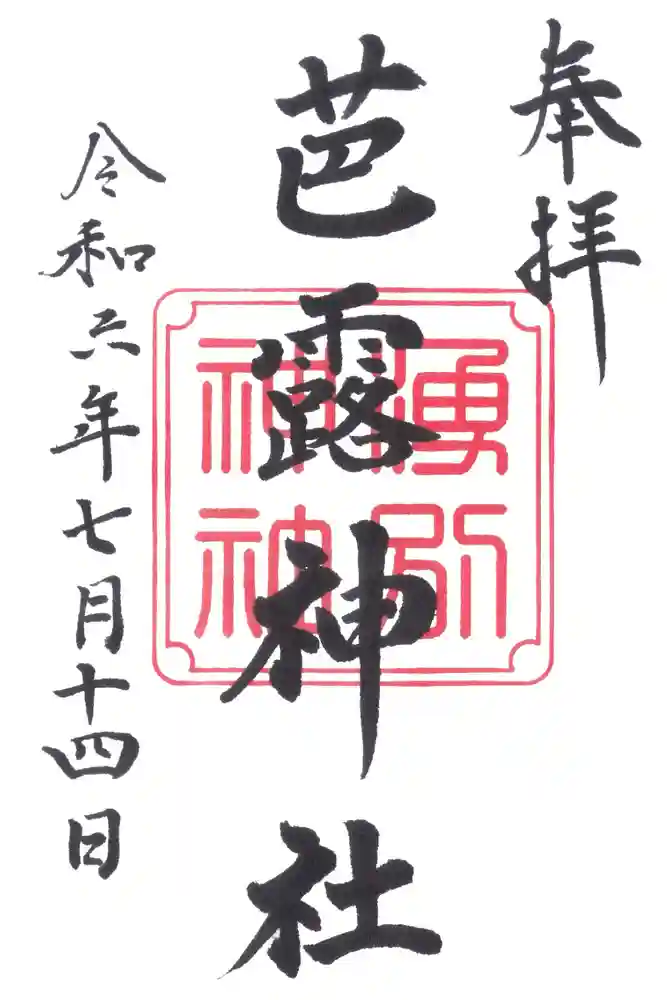 奉拝
芭露神社
湧別
神社
令和六年七月十四日